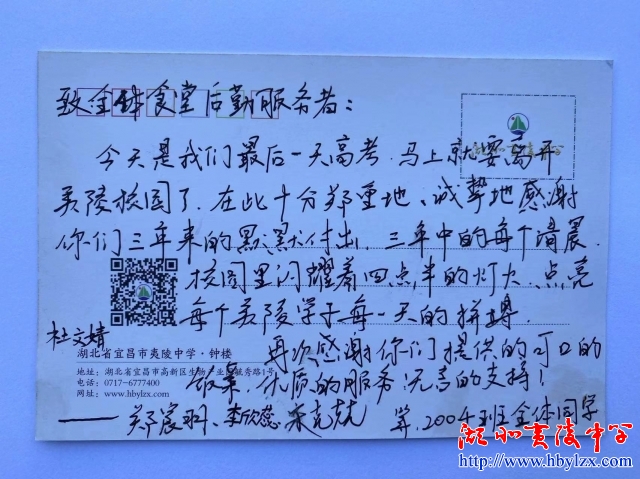 致全体食堂后勤服务者：
今天是我们最后一天高考，马上就要离开
夷陵校园了，在此十分郑重地、诚挚地感谢
你们三年来的默默付出，三年中的每个清晨，
校园里闪耀着四点半的灯火，点亮
每个夷陵学子每一天的拼搏。
再次感谢你们提供的可口的
饭菜，优质的服务，无言的支持！
杜文婧
湖北省宜昌市夷陵中学·钟楼
地址：湖北省宜昌市高新区生物产业园毓秀路1号
电话：0717-6777400
网址：www.hbylzx.com
——郑宸羽、李欣蕊 朱克兢 等，2004班全体同学
湖北夷陵中学
http://www.hbylzx.com